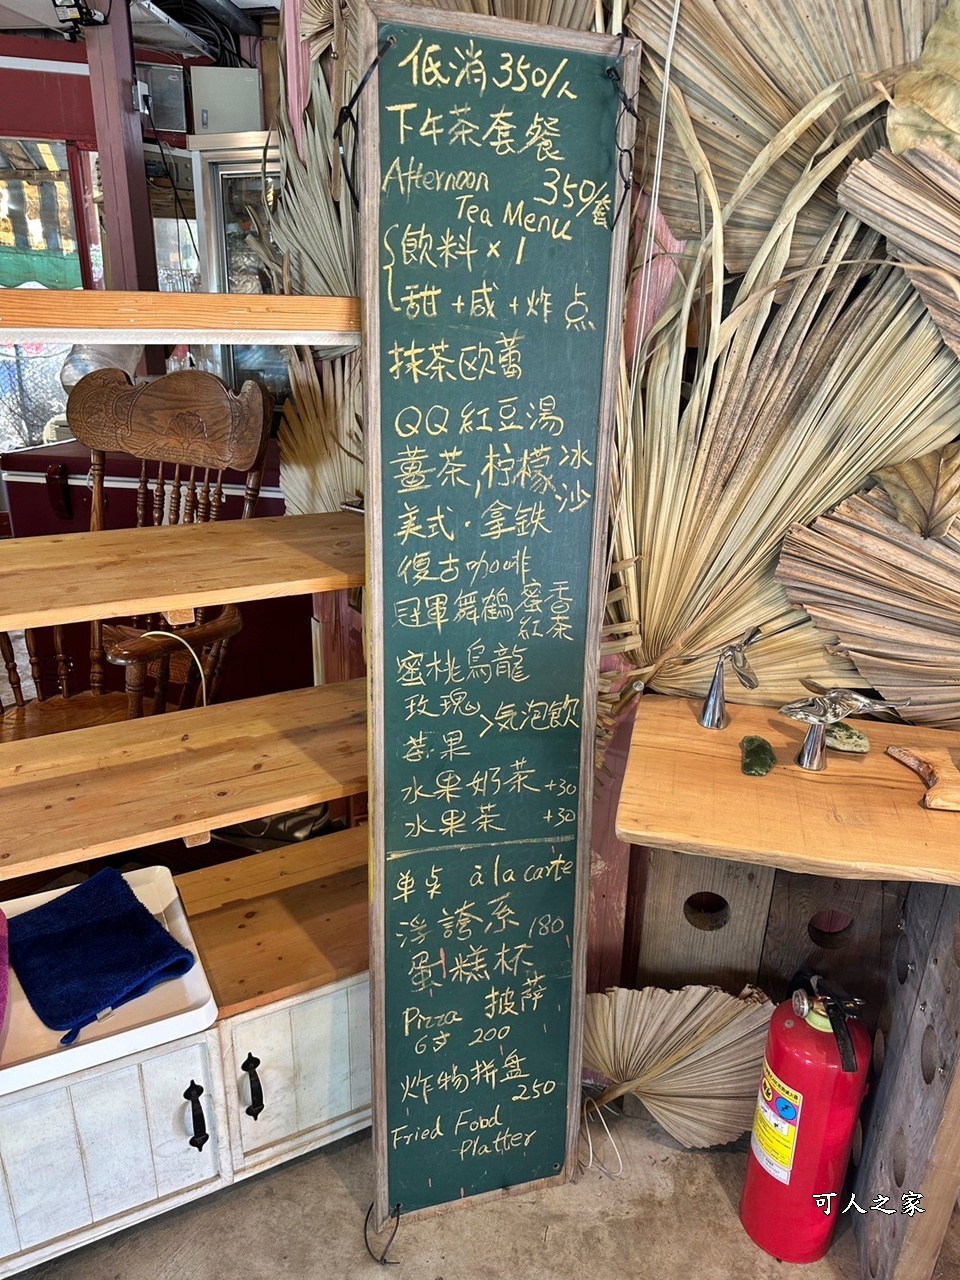 低消350/人
下午茶套餐
Afternoon 350/套
Tea Menu
飲料×1
甜+咸+炸点
抹茶欧蕾
QQ紅豆湯
薑茶,柠檬冰沙
美式·拿鉄
復古咖啡
冠軍舞鶴蜜香紅茶
蜜桃烏龍
玫瑰>気泡飲
莓果
水果奶茶+30
水果茶 +30
单桌 à la carte
浮誇系 180
蛋糕杯
Pizza 披薩
6寸 200
炸物拼盘
250
Fried Food
Platter
可人之家